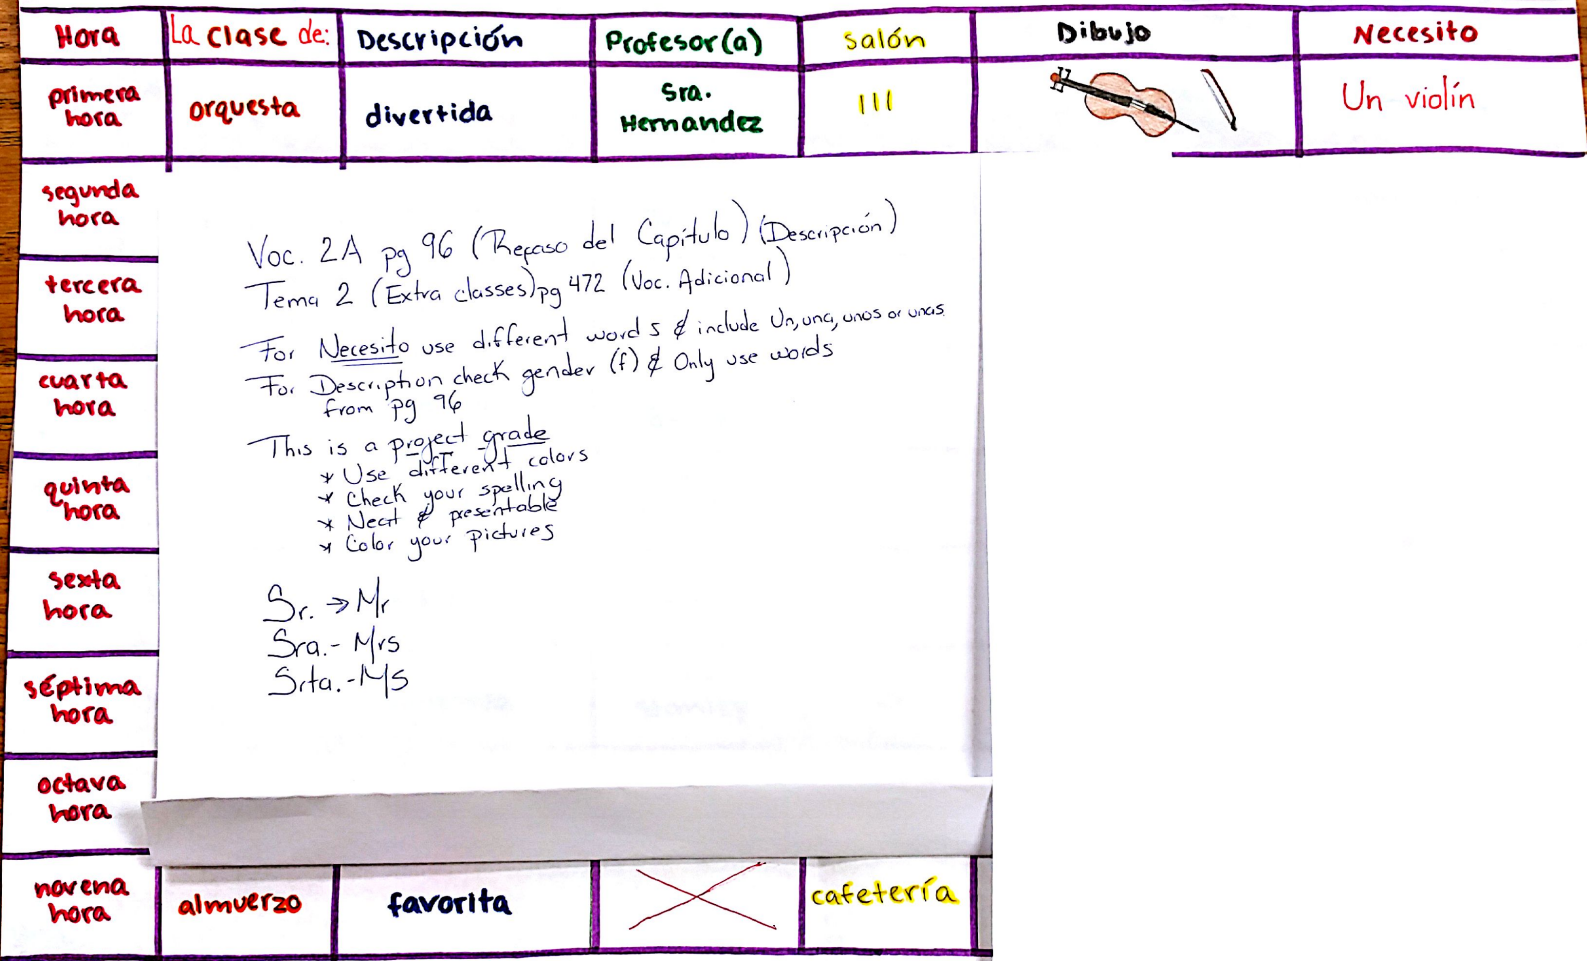 Hora La clase de: Descripción Profesor(a) salón Dibujo Necesito
primera hora orquesta divertida Sra. Hernandez 111 Un violín
segunda
hora
tercera
hora
cuarta
hora
quinta
hora
sexta
hora
séptima
hora
octava
hora
Voc. 2A pg 96 (Repaso del Capítulo) (Descripción)
Tema 2 (Extra classes) pg 472 (Voc. Adicional)
For Necesito use different words & include Un, una, unos or unas
For Description check gender (f) & Only use words
from pg 96
This is a project grade
* Use different colors
* Check your spelling
* Neat & presentable
* Color your pictures
Sr. → Mr
Sra. - Mrs
Srta. - Ms
novena hora almuerzo favorita cafetería